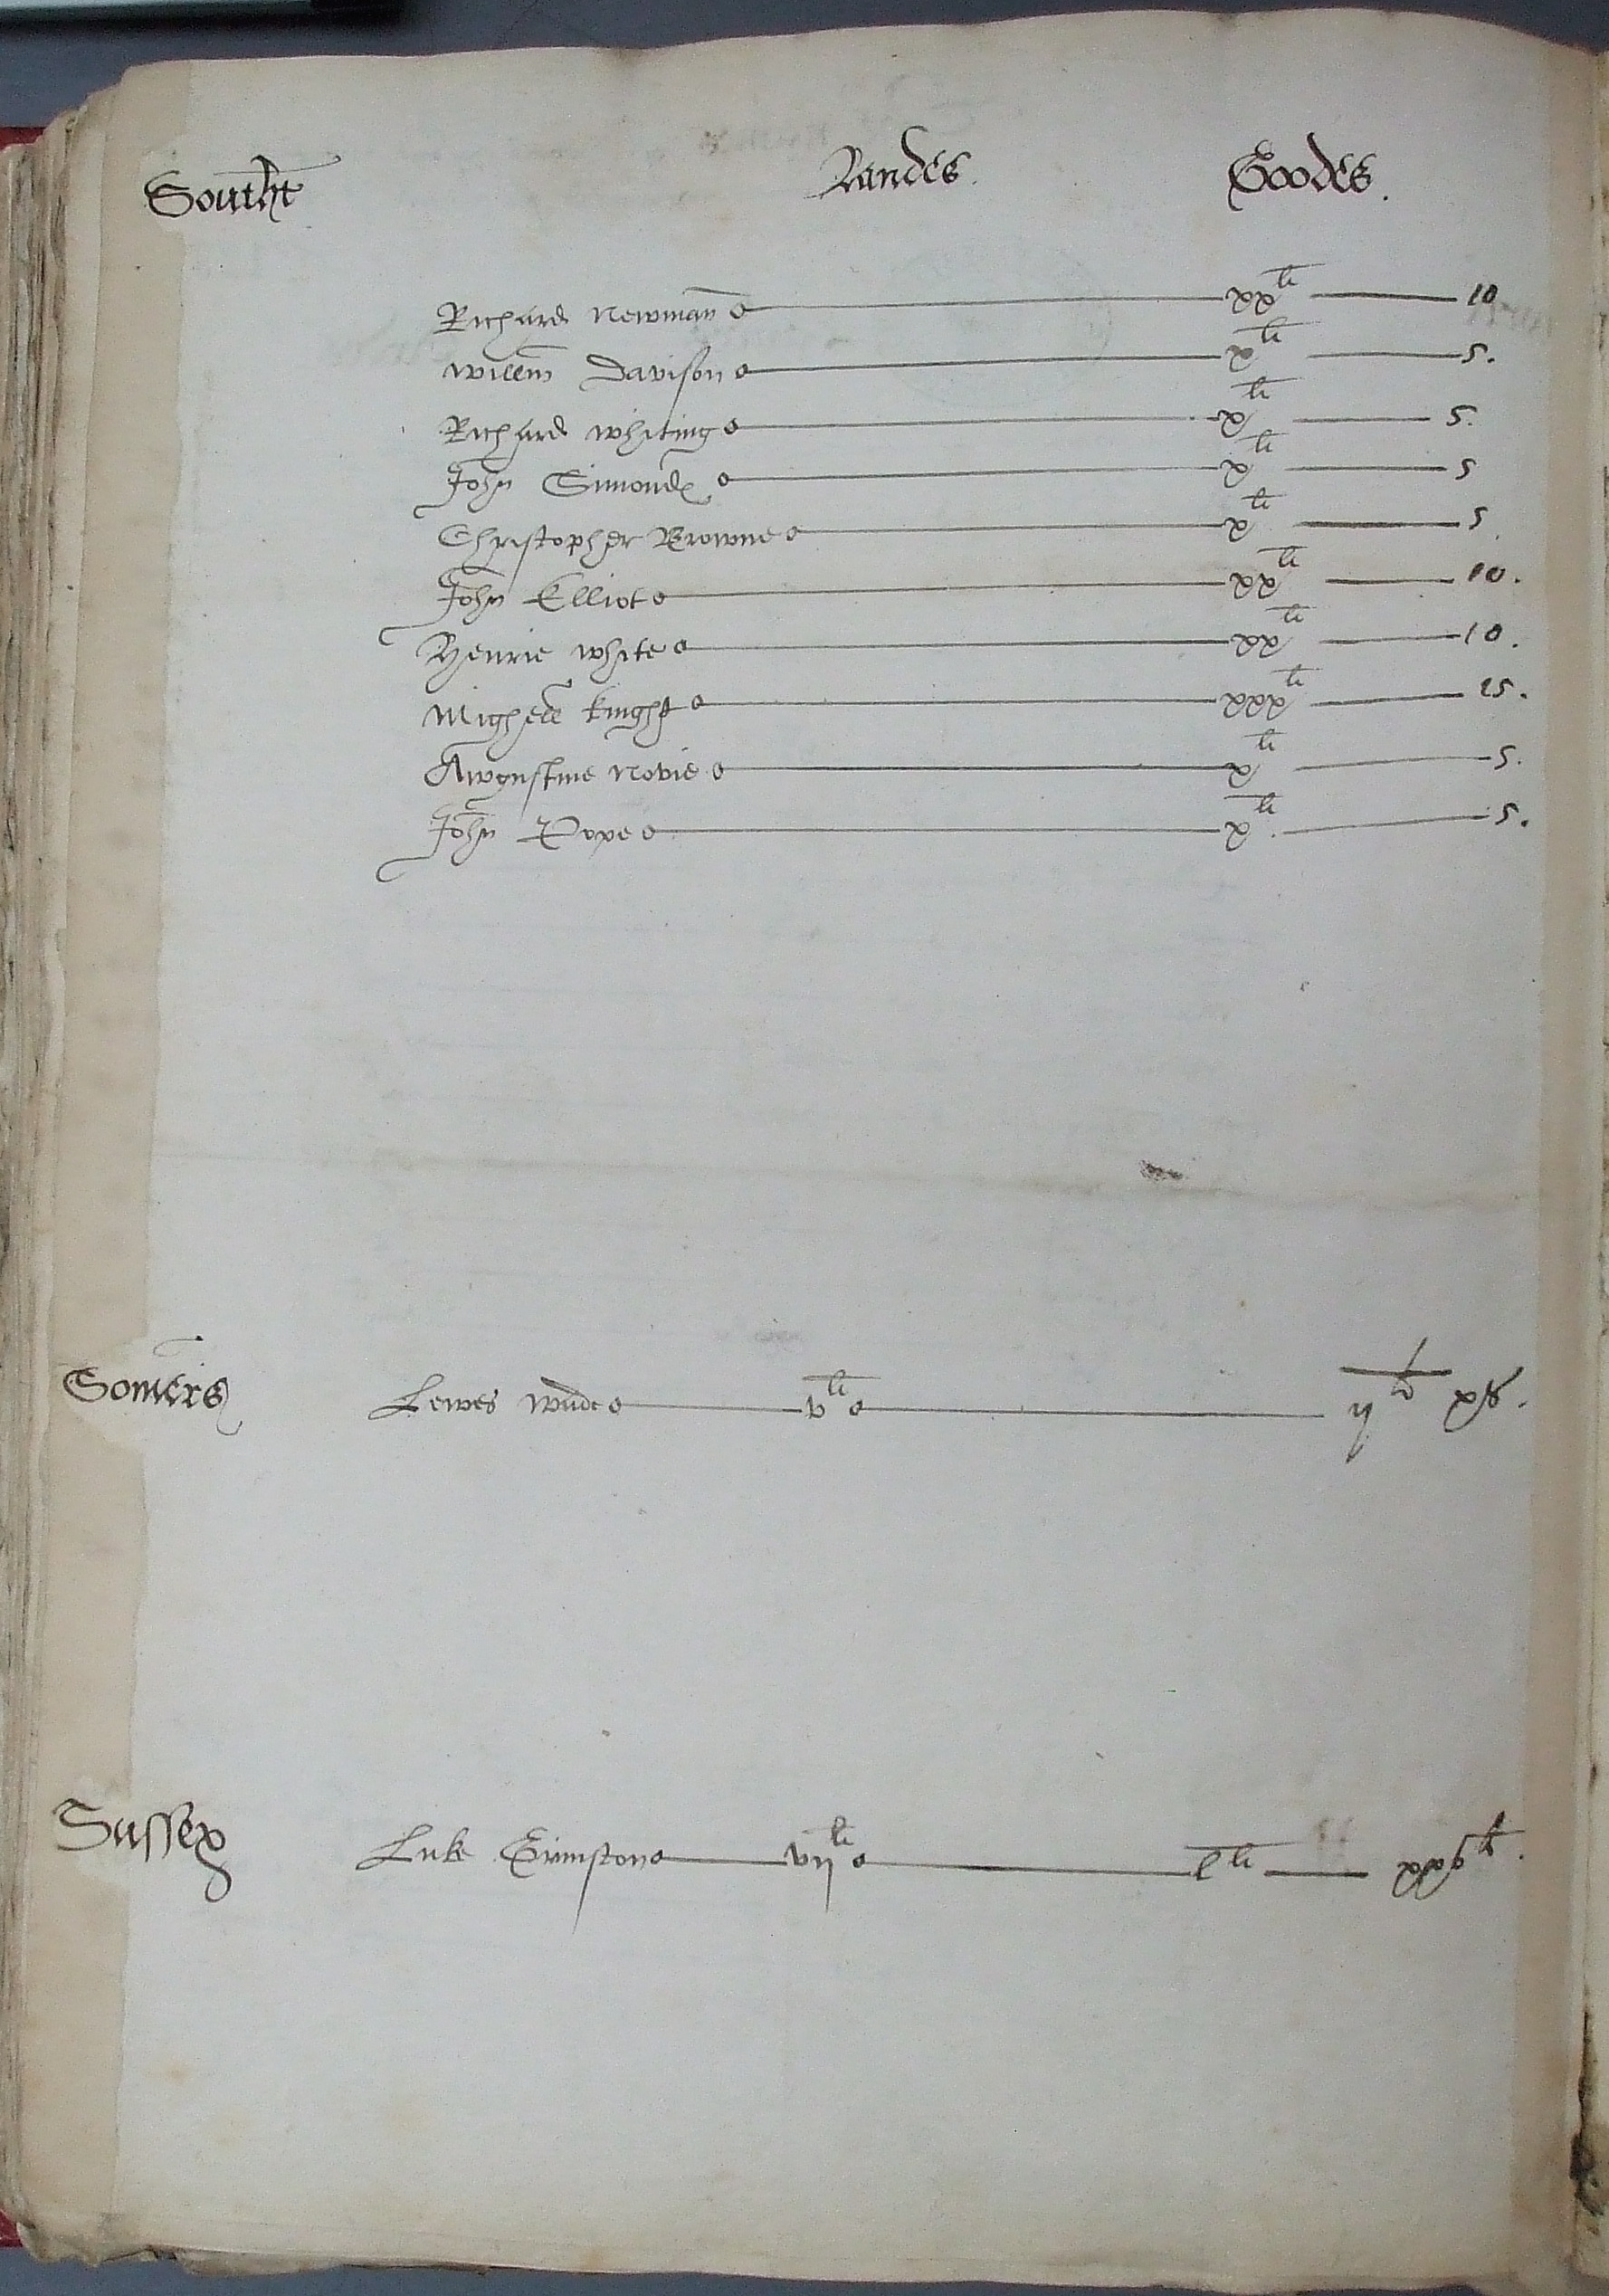 Southt Landes. Goodes.
Richard Newman xx li 10
Willm Davison x li 5.
Richard Whiting x li 5.
John Simond x li 5
Christopher Browne x li 5
John Elliot xx li 10.
Henrie White xx li 10.
Mighell Knight xxx li 15.
Awgustine Novie x li 5.
John Pope x li 5.
Somers Lewes v li ij li xs.
Sussex Luke Grimston vij li l li xxv li.